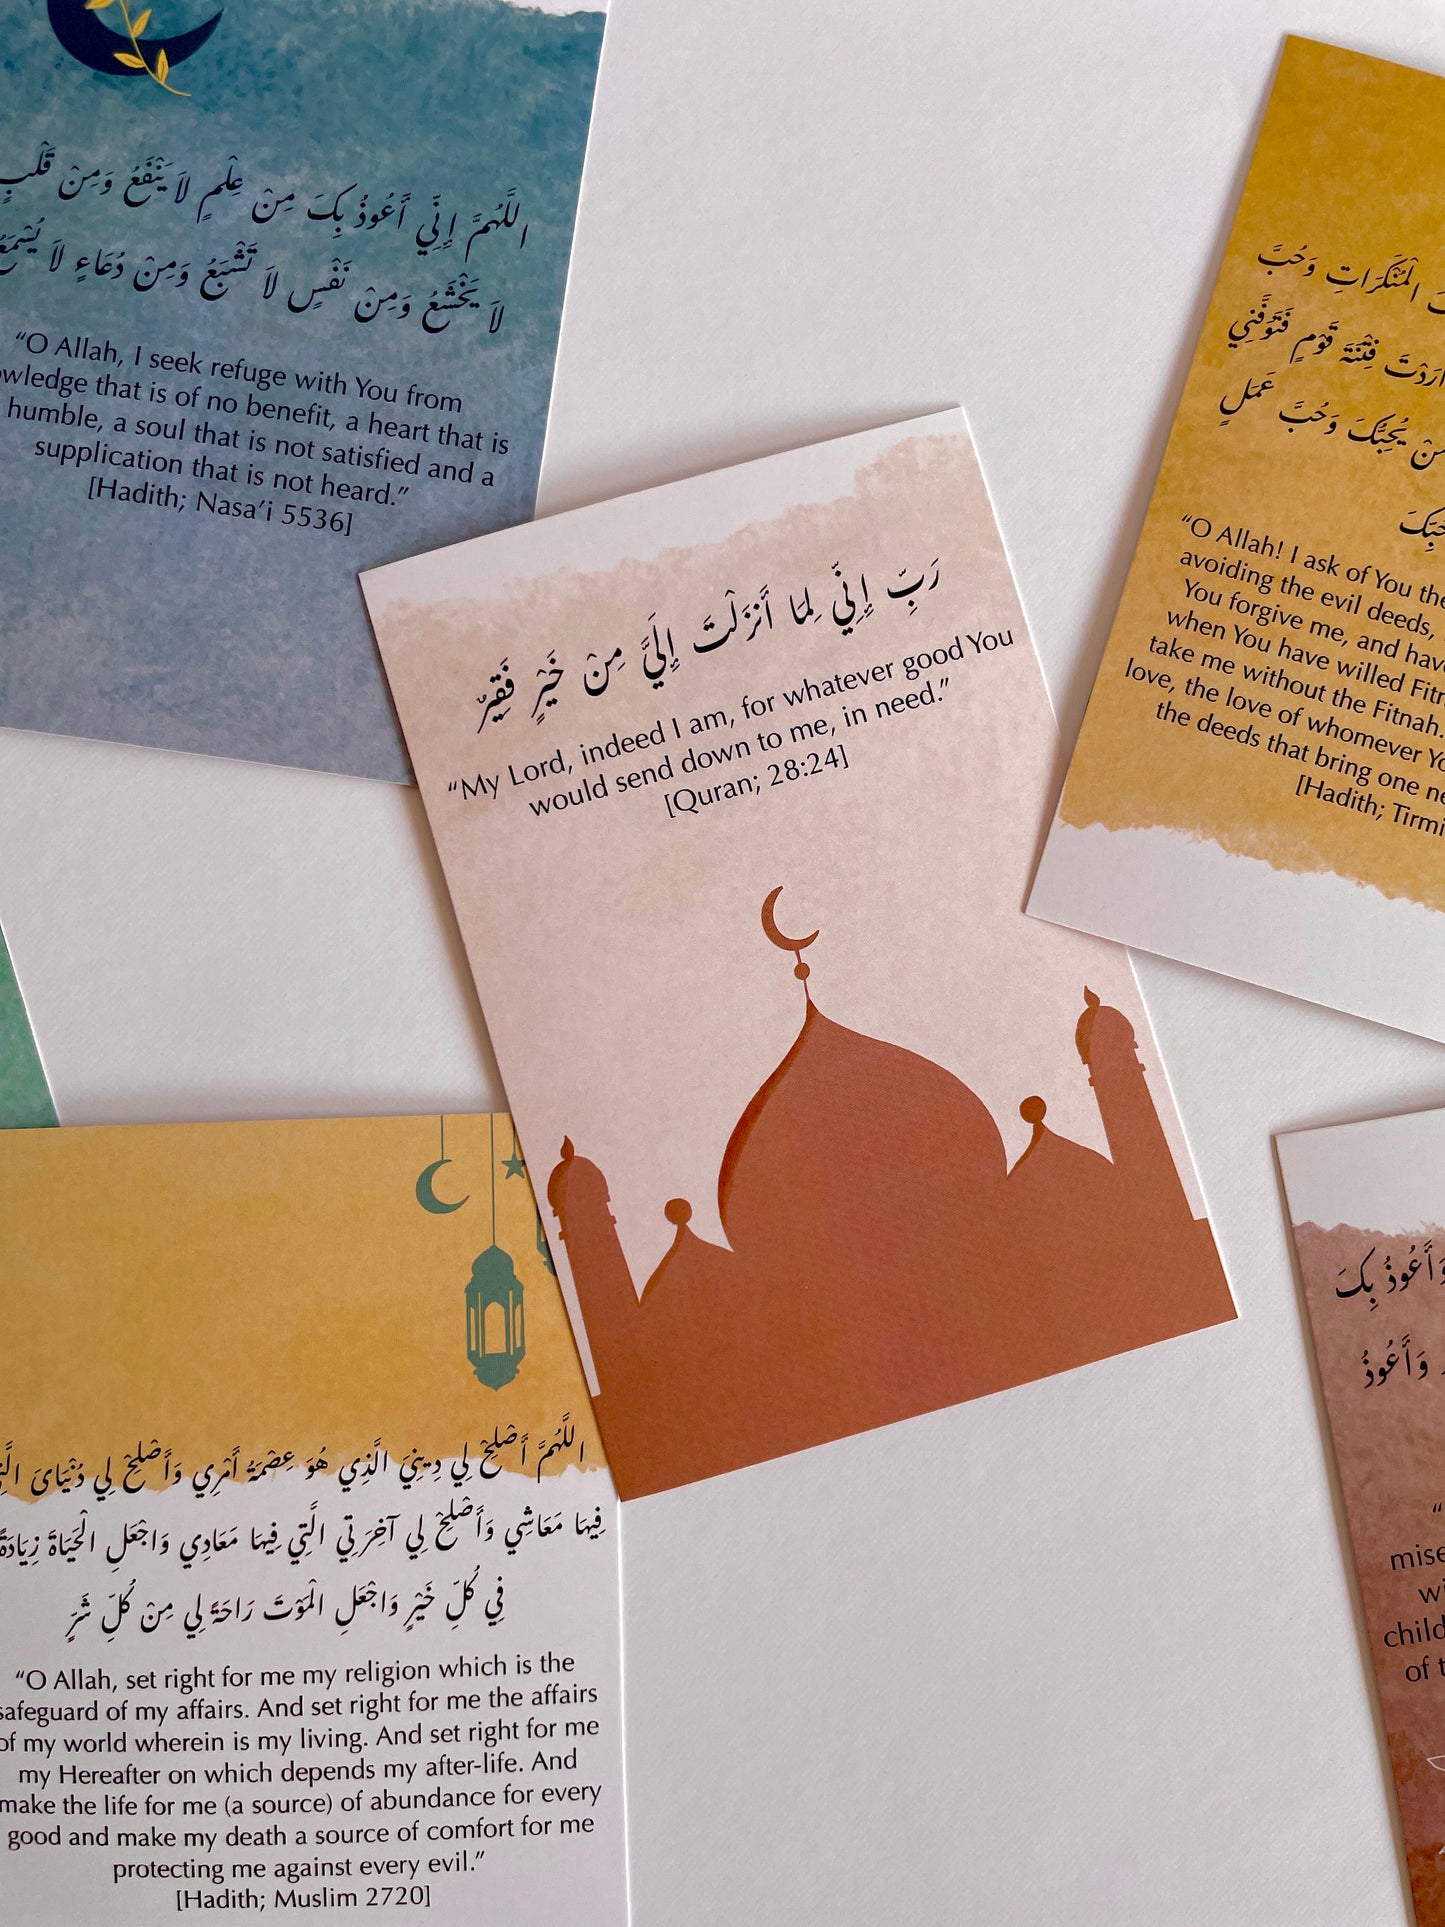 اللَّهُمَّ إِنِّي أَعُوذُ بِكَ مِنْ عِلْمٍ لاَ يَنْفَعُ وَمِنْ قَلْبٍ
لاَ يَخْشَعُ وَمِنْ نَفْسٍ لاَ تَشْبَعُ وَمِنْ دُعَاءٍ لاَ يُسْمَعُ
“O Allah, I seek refuge with You from
wledge that is of no benefit, a heart that is
humble, a soul that is not satisfied and a
supplication that is not heard.”
[Hadith; Nasa’i 5536]
رَبِّ إِنِّي لِمَا أَنزَلْتَ إِلَيَّ مِنْ خَيْرٍ فَقِيرٌ
“My Lord, indeed I am, for whatever good You
would send down to me, in need.”
[Quran; 28:24]
الْمُنْكَرَاتِ وَحُبَّ
أَرَدْتَ فِتْنَةَ قَوْمٍ فَتَوَفَّنِي
مَنْ يُحِبُّكَ وَحُبَّ عَمَلٍ
حُبِّكَ
“O Allah! I ask of You the
avoiding the evil deeds,
You forgive me, and have
when You have willed Fitn
take me without the Fitnah.
love, the love of whomever Yo
the deeds that bring one ne
[Hadith; Tirmi
اللَّهُمَّ أَصْلِحْ لِي دِينِيَ الَّذِي هُوَ عِصْمَةُ أَمْرِي وَأَصْلِحْ لِي دُنْيَاىَ الَّتِي
فِيهَا مَعَاشِي وَأَصْلِحْ لِي آخِرَتِي الَّتِي فِيهَا مَعَادِي وَاجْعَلِ الْحَيَاةَ زِيَادَةً
فِي كُلِّ خَيْرٍ وَاجْعَلِ الْمَوْتَ رَاحَةً لِي مِنْ كُلِّ شَرٍّ
“O Allah, set right for me my religion which is the
safeguard of my affairs. And set right for me the affairs
of my world wherein is my living. And set right for me
my Hereafter on which depends my after-life. And
make the life for me (a source) of abundance for every
good and make my death a source of comfort for me
protecting me against every evil.”
[Hadith; Muslim 2720]
وَأَعُوذُ بِكَ
وَأَعُوذُ
“
mise
wi
child
of t